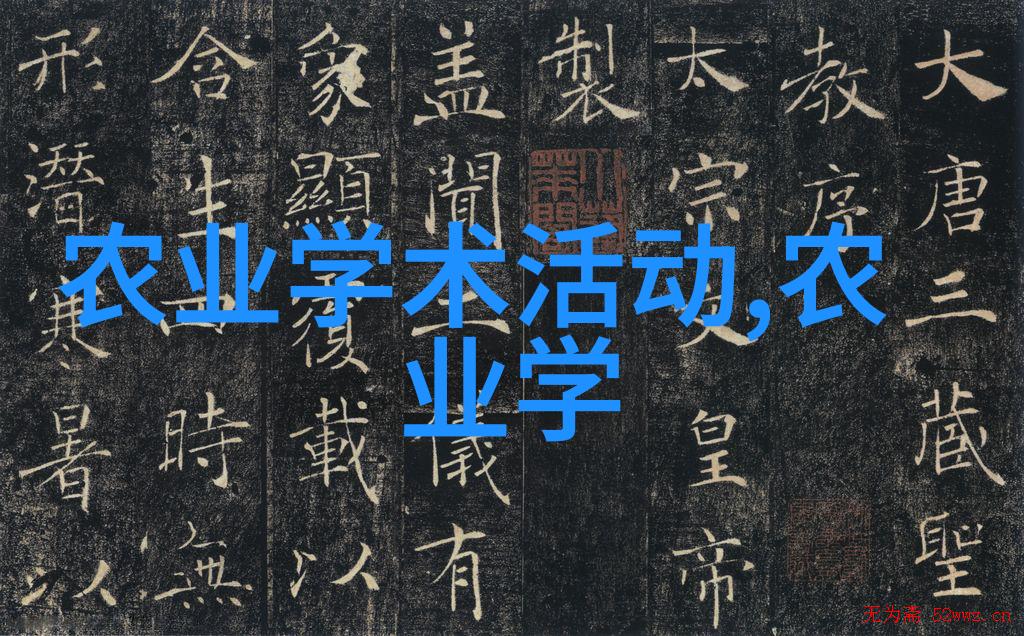 大唐三藏聖
教序
太宗文皇帝
製
盖聞二儀有
象顯覆載以
含生四時無
形潛寒暑以
农业学术活动,农
业学
无为斋 52wwz.cn